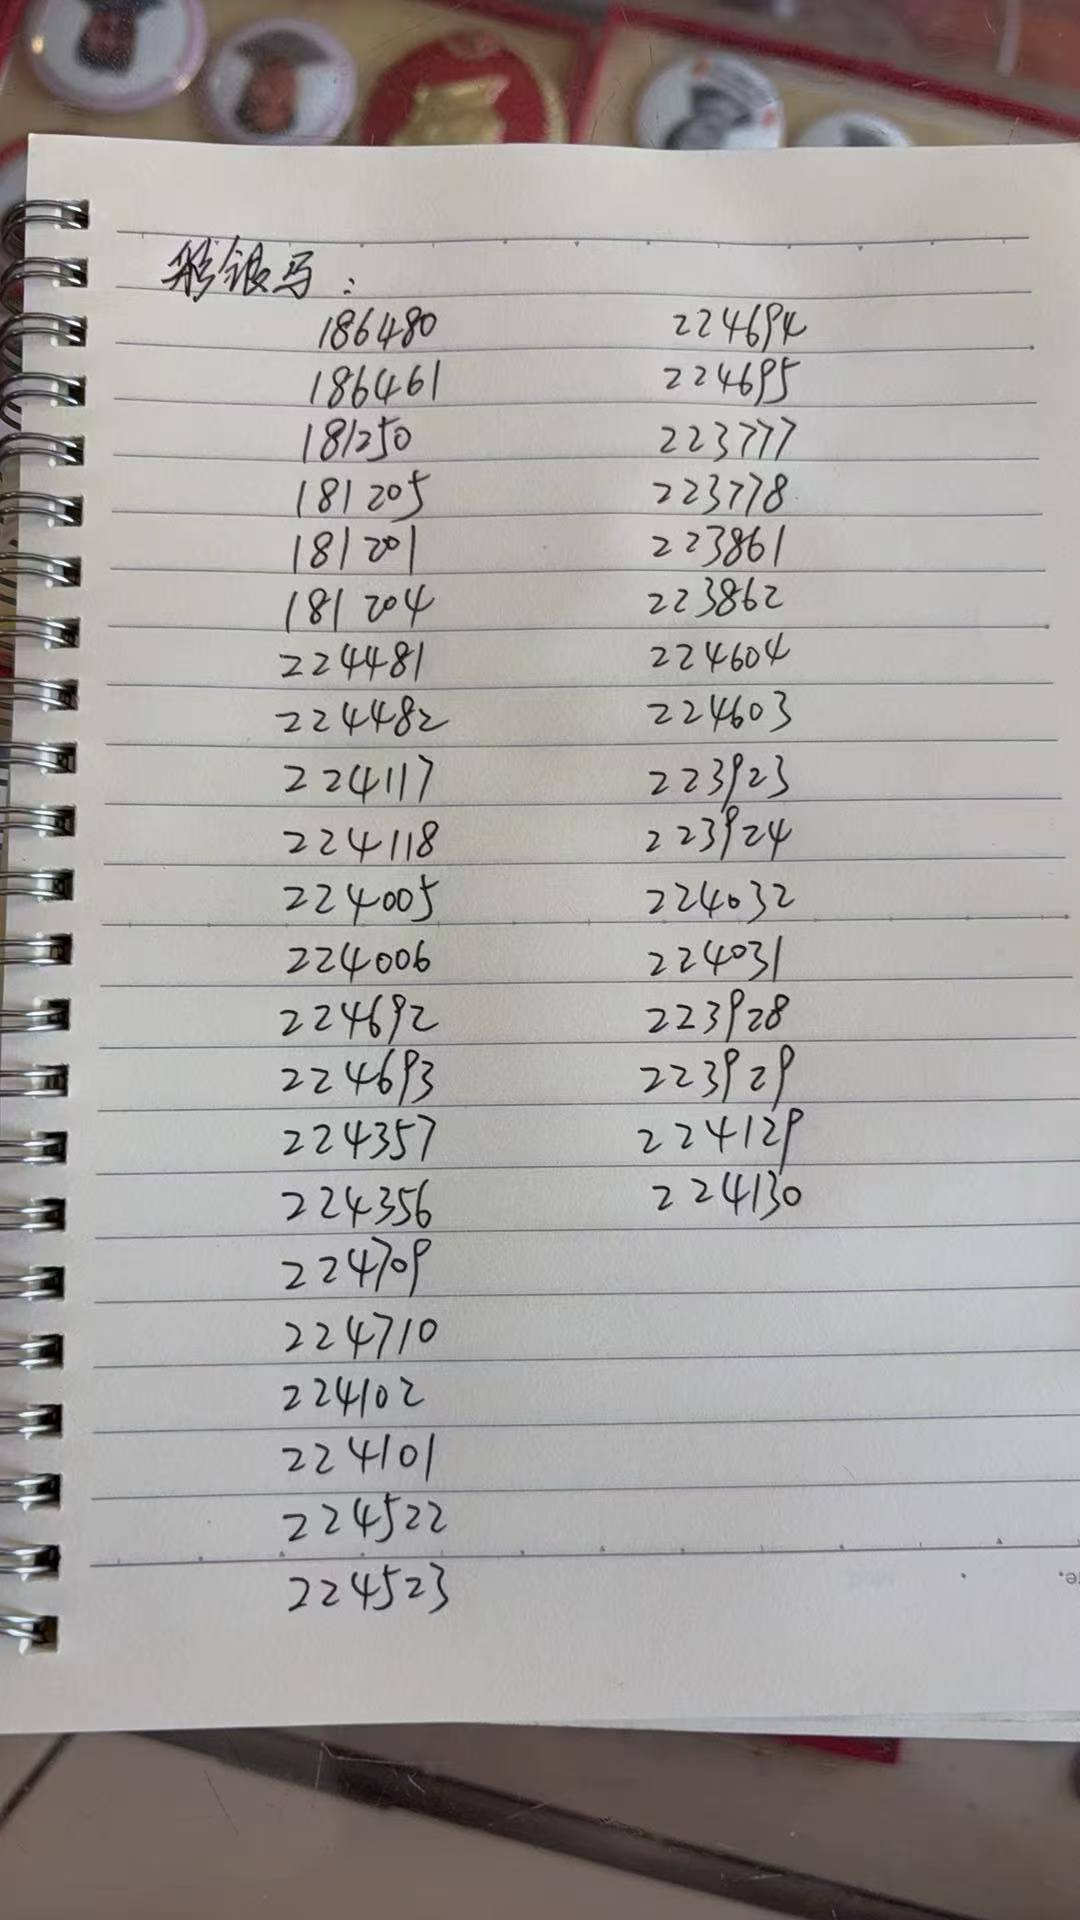 彩银马：
186480
186461
181250
181205
181201
181204
224481
224482
224117
224118
224005
224006
224692
224693
224357
224356
224709
224710
224102
224101
224522
224523
224694
224695
223777
223778
223861
223862
224604
224603
223923
223924
224032
224031
223928
223929
224129
224130